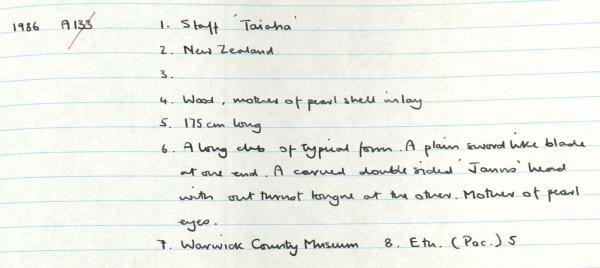 1936 A133 1. Staff 'Taiaha'
2. New Zealand
3.
4. Wood, mother of pearl shell inlay
5. 175cm long
6. A long club of typical form. A plain sword like blade
at one end. A carved double sided 'Janus' head
with out thrust tongue at the other. Mother of pearl
eyes.
7. Warwick County Museum 8. Eth. (Pac.) 5